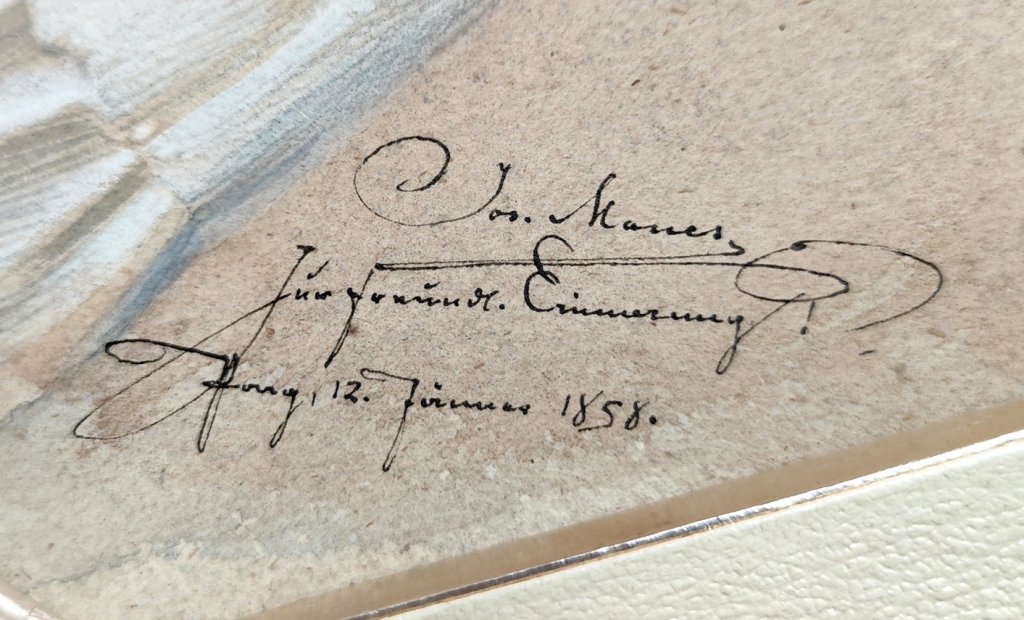 Jos. Manes
Zur freundl. Erinnerung!
Prag, 12. Jänner 1858.